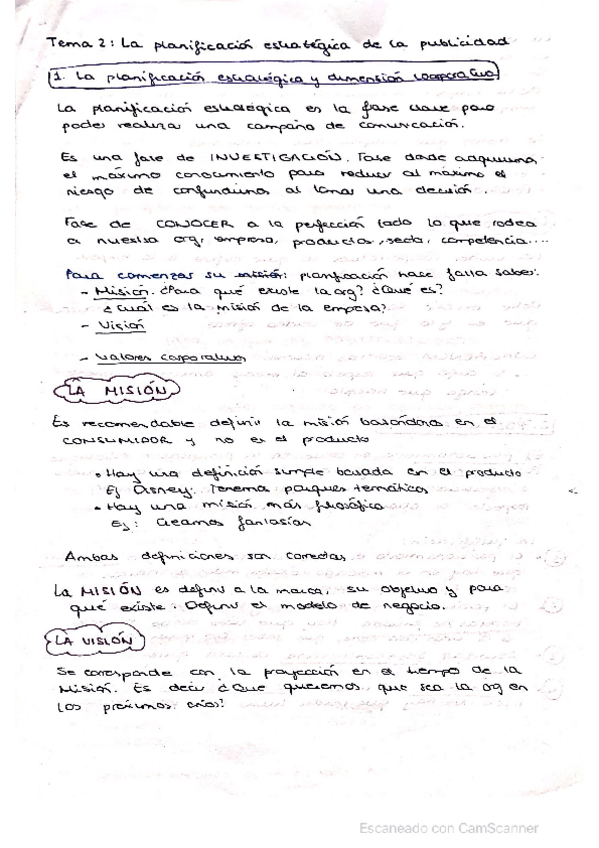 Tema 2: La planificación estratégica de la publicidad
1. La planificación estratégica y dimensión cooperativa
La planificación estratégica es la fase clave para
poder realizar una campaña de comunicación.
Es una fase de INVESTIGACIÓN. Fase donde adquirimos
el máximo conocimiento para reducir al máximo el
riesgo de confundirnos al tomar una decisión.
Fase de CONOCER a la perfección todo lo que rodea
a nuestra org, empresa, productos, sector, competencia....
Para comenzar su misión: planificación hace falta saber:
- Misión. ¿Para qué existe la org? ¿Qué es?
¿Cuál es la misión de la empresa?
- Visión
- Valores corporativos
LA MISIÓN
Es recomendable definir la misión basándonos en el
CONSUMIDOR y no en el producto
• Hay una definición simple basada en el producto
Ej Disney: Tenemos parques temáticos
• Hay una misión más filosófica
Ej: Creamos fantasías
Ambas definiciones son correctas
La MISIÓN es definir a la marca, su objetivo y para
qué existe. Definir el modelo de negocio.
LA VISIÓN
Se corresponde con la proyección en el tiempo de la
Misión. Es decir ¿Que queremos que sea la org en
los próximos años?
Escaneado con CamScanner